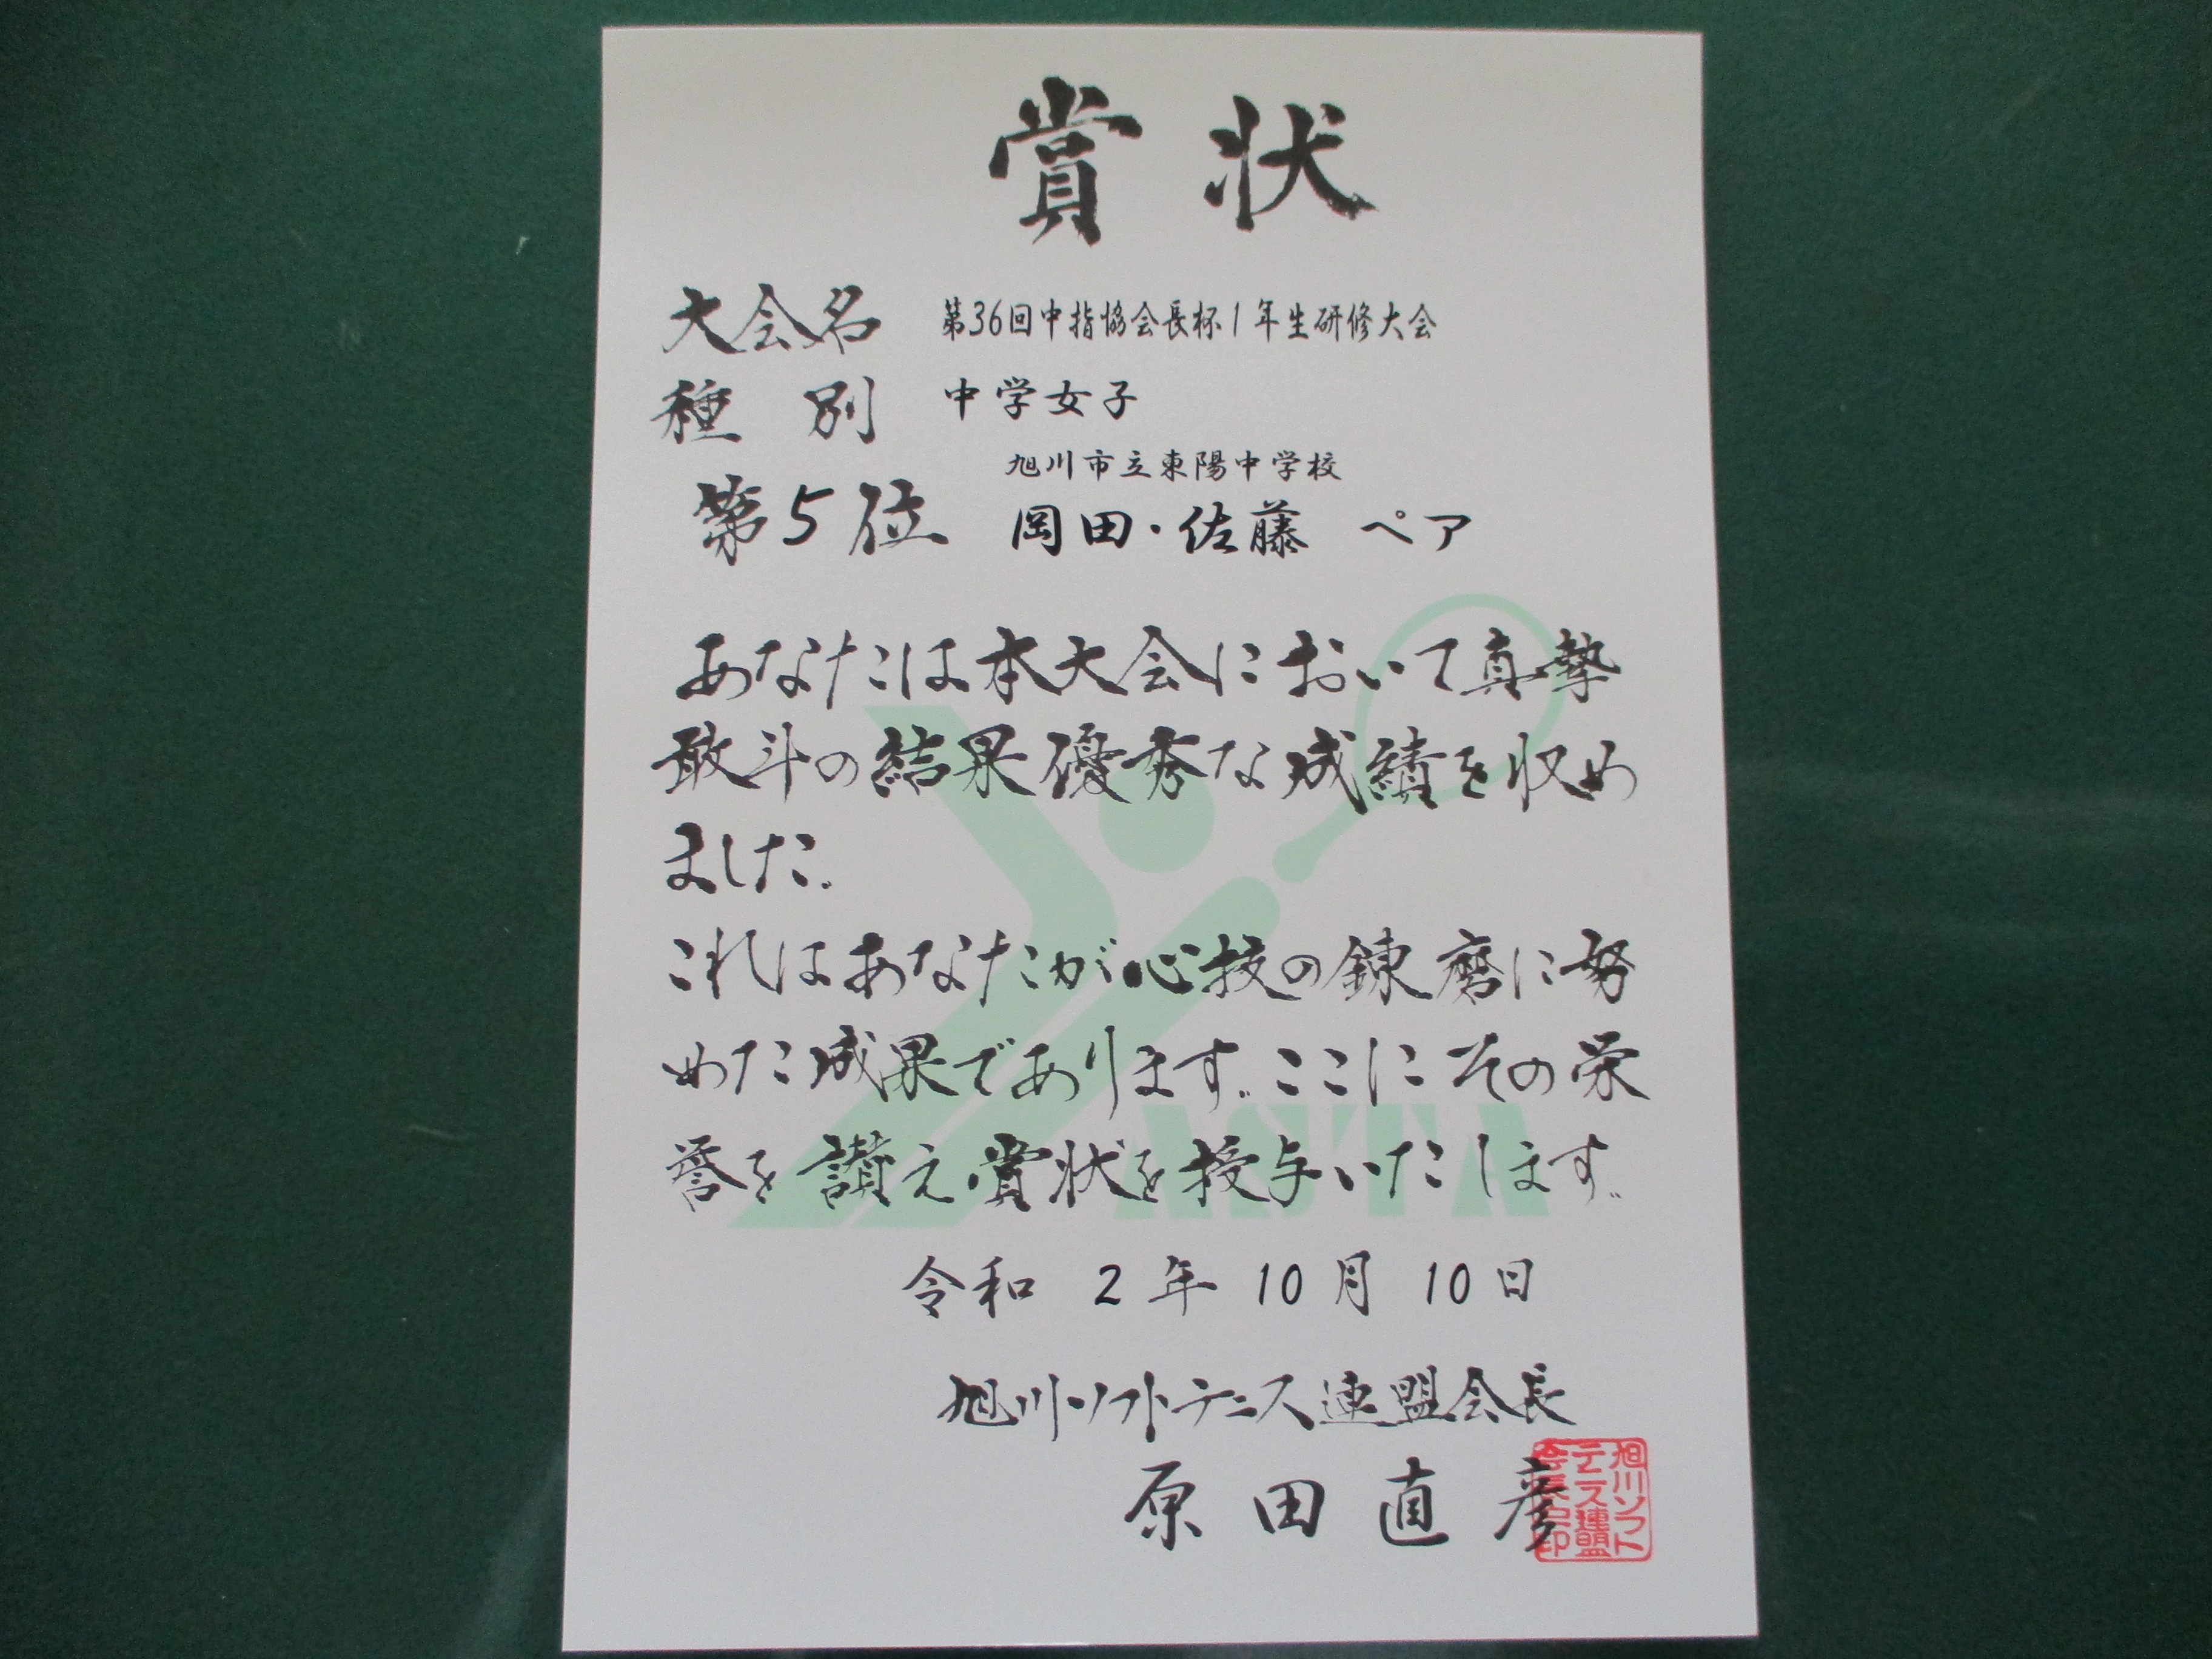 賞状
大会名 第36回中指協会長杯1年生研修大会
種別 中学女子
旭川市立東陽中学校
第5位 岡田・佐藤 ペア
あなたは本大会において真摯
敢斗の結果優秀な成績を収め
ました。
これはあなたが心技の錬磨に努
めた成果であります。ここにその栄
誉を讃え賞状を授与いたします。
ASTA
令和 2年 10月 10日
旭川ソフトテニス連盟会長
原田直彦
旭川ソフト
テニス連盟
会長之印